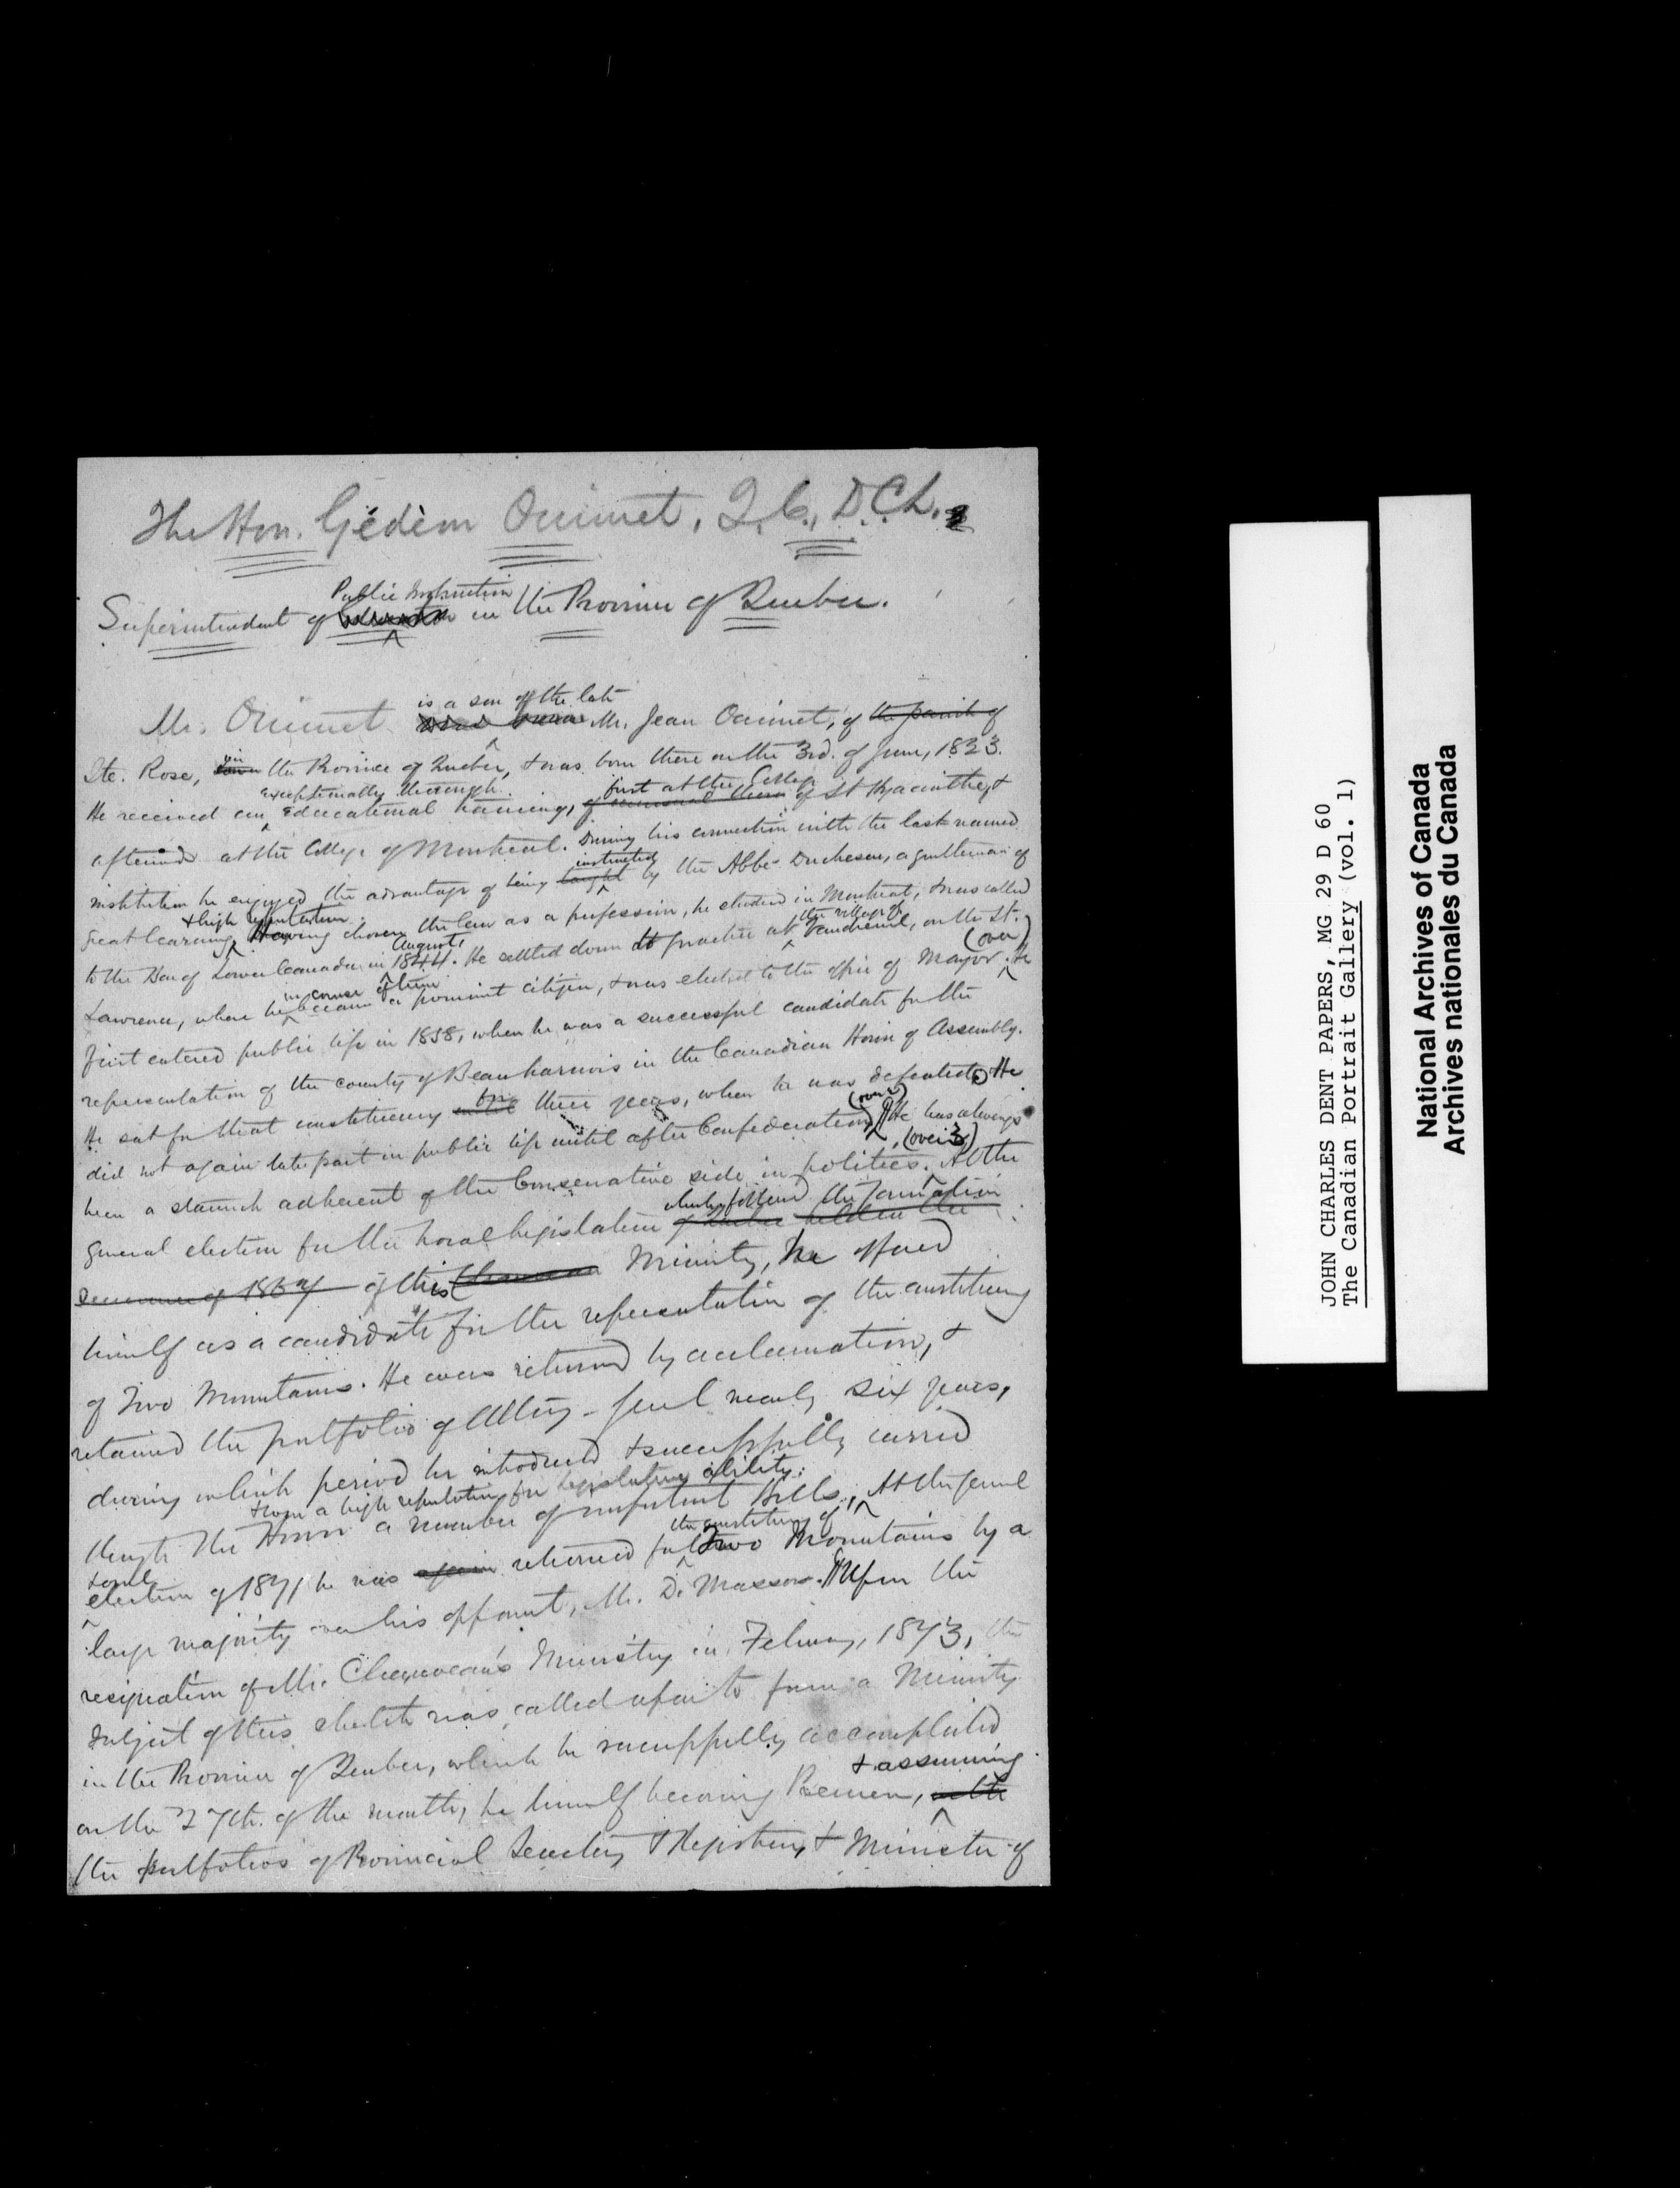 The Hon. Gédèon Ouimet, Q.C., D.C.L.
Public Instruction
Superintendent of in the Province of Quebec.
is a son of the late
Mr. Ouimet was born Mr. Jean Ouimet, of the parish of
Ste. Rose, in the Province of Quebec, & was born there on the 3rd. of June, 1823.
exceptionally thorough first at the College
He received an educational training, of St Hyacinthe, &
afterwards at the College of Montreal. During his connection with the last-named
instructed
institution he enjoyed the advantage of being taught by the Abbé Duchesne, a gentleman of
& high reputation.
great learning. Having chosen the law as a profession, he studied in Montreal, & was called
August, the village of
to the Bar of Lower Canada in 1844. He settled down to practice at Vaudreuil, on the St.
in course of time (over)
Lawrence, where he became a prominent citizen, & was elected to the office of Mayor. He
first entered public life in 1858, when he was a successful candidate for the
representation of the county of Beauharnois in the Canadian House of Assembly.
for
He sat for that constituency until three years, when he was defeated. He
(over)
did not again take part in public life until after Confederation. He has always
(over 3)
been a staunch adherent of the Conservative side in politics. At the
which followed the formation
general election for the Local Legislature of Quebec held in the
summer of 1867 of this Ministry, he offered
himself as a candidate for the representation of the constituency
of Two Mountains. He was returned by acclamation, &
retained the portfolio of Attorney-General nearly six years,
during which period he introduced & successfully carried
& won a high reputation for legislative ability.
through the House a number of important Bills, At the general
the constituency of
election of 1871 he was again returned for Two Mountains by a
large majority over his opponent, Mr. D. Masson. Upon the
resignation of Mr. Chauveau's Ministry in February, 1873, the
subject of this sketch was called upon to form a Ministry
in the Province of Quebec, which he successfully accomplished
& assuming
on the 27th. of the month, he himself becoming Premier, with
the portfolios of Provincial Secretary & Registrar, & Minister of
JOHN CHARLES DENT PAPERS, MG 29 D 60
The Canadian Portrait Gallery (vol. 1)
National Archives of Canada
Archives nationales du Canada